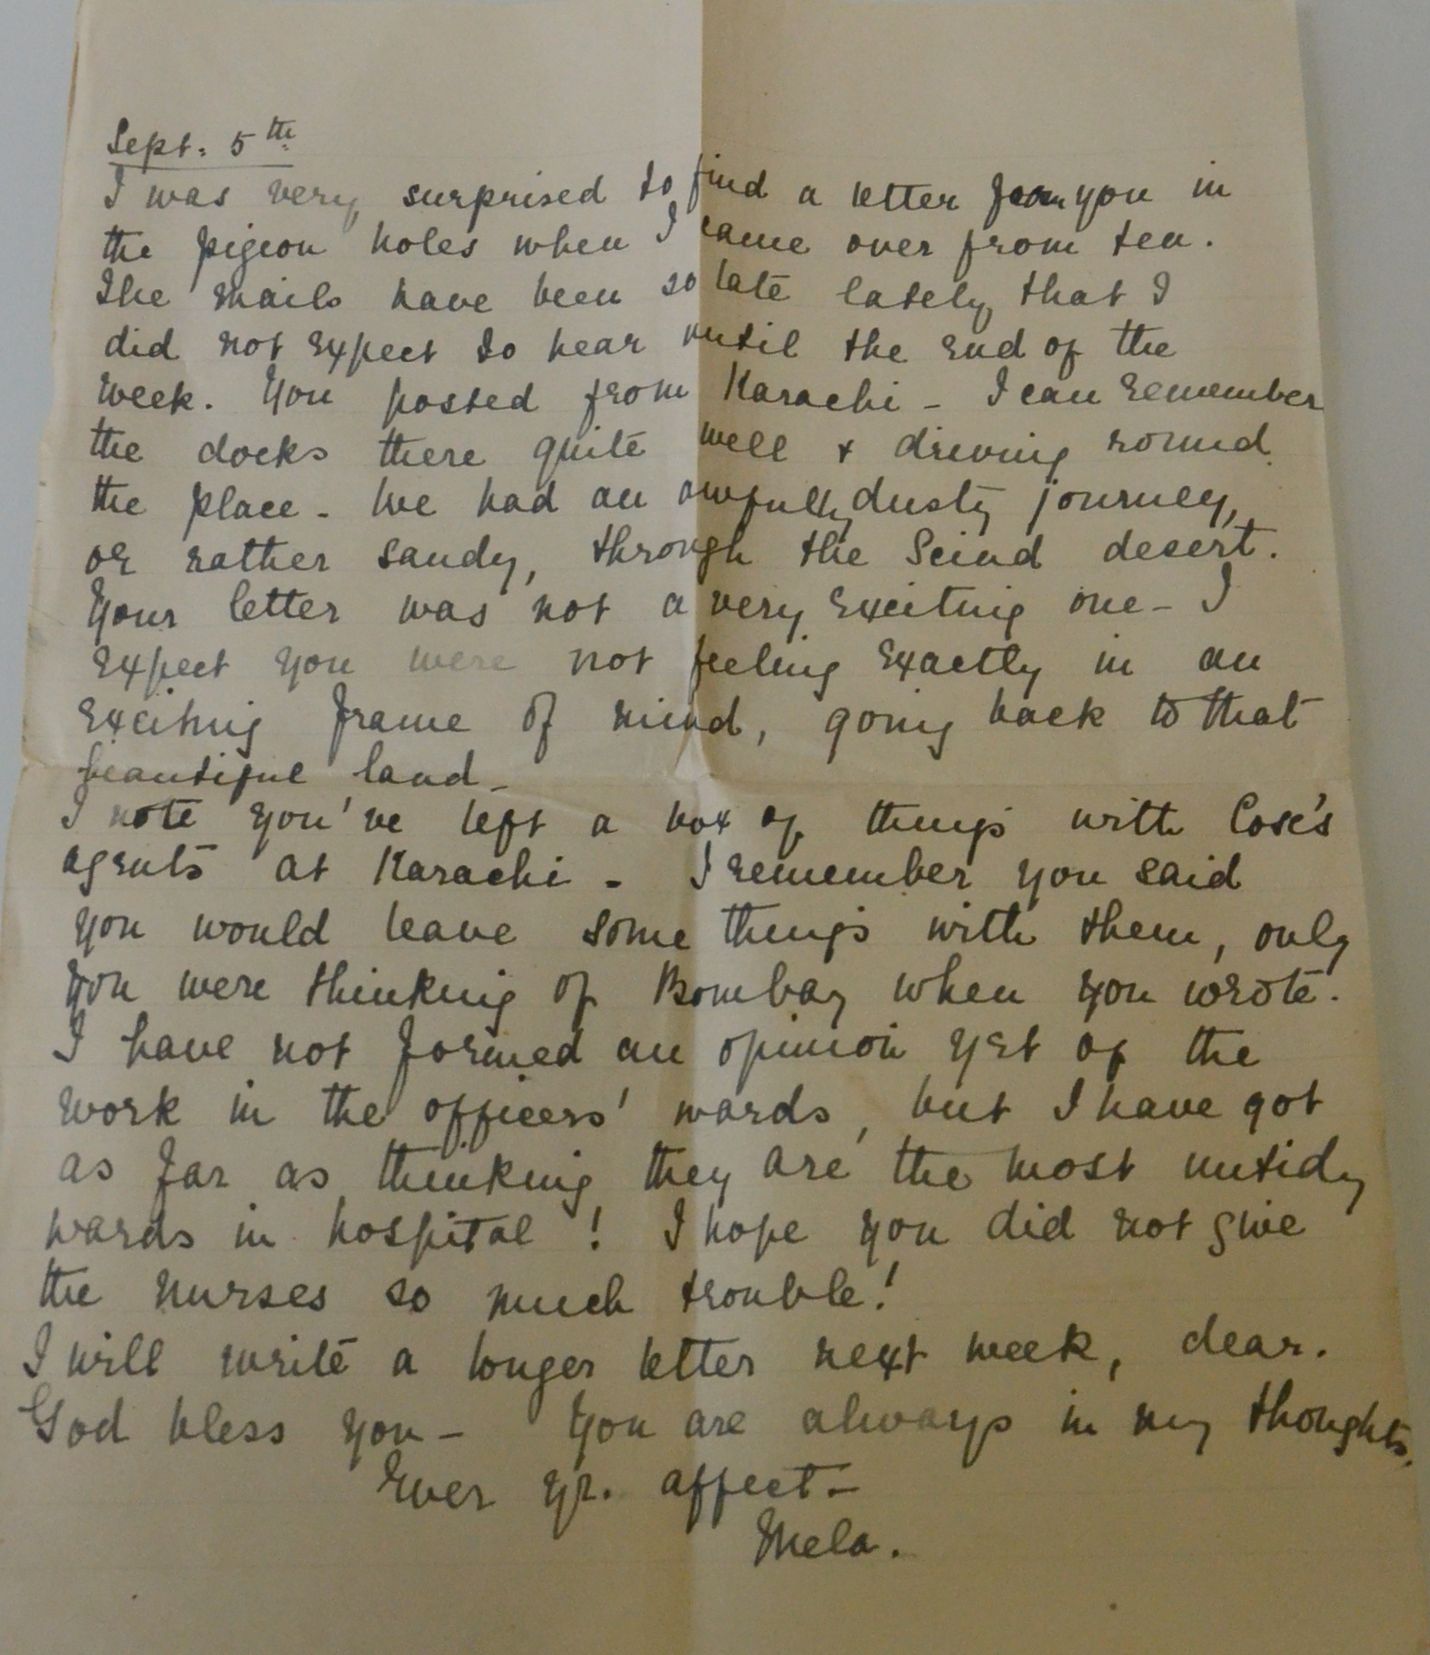 Sept. 5th
I was very surprised to find a letter from you in
the pigeon holes when I came over from tea.
The mails have been so late lately that I
did not expect to hear until the end of the
week. You posted from Karachi - I can remember
the docks there quite well & driving round
the place - We had an awfully dusty journey,
or rather sandy, through the Scind desert.
Your letter was not a very exciting one - I
expect you were not feeling exactly in an
exciting frame of mind, going back to that
beautiful land -
I note you've left a box of things with Cox's
agents at Karachi - I remember you said
you would leave some things with them, only
you were thinking of Bombay when you wrote.
I have not formed an opinion yet of the
work in the officers' wards, but I have got
as far as thinking they are the most untidy
wards in hospital! I hope you did not give
the nurses so much trouble!
I will write a longer letter next week, dear.
God bless you - You are always in my thoughts.
Ever yr. affect -
Mela.